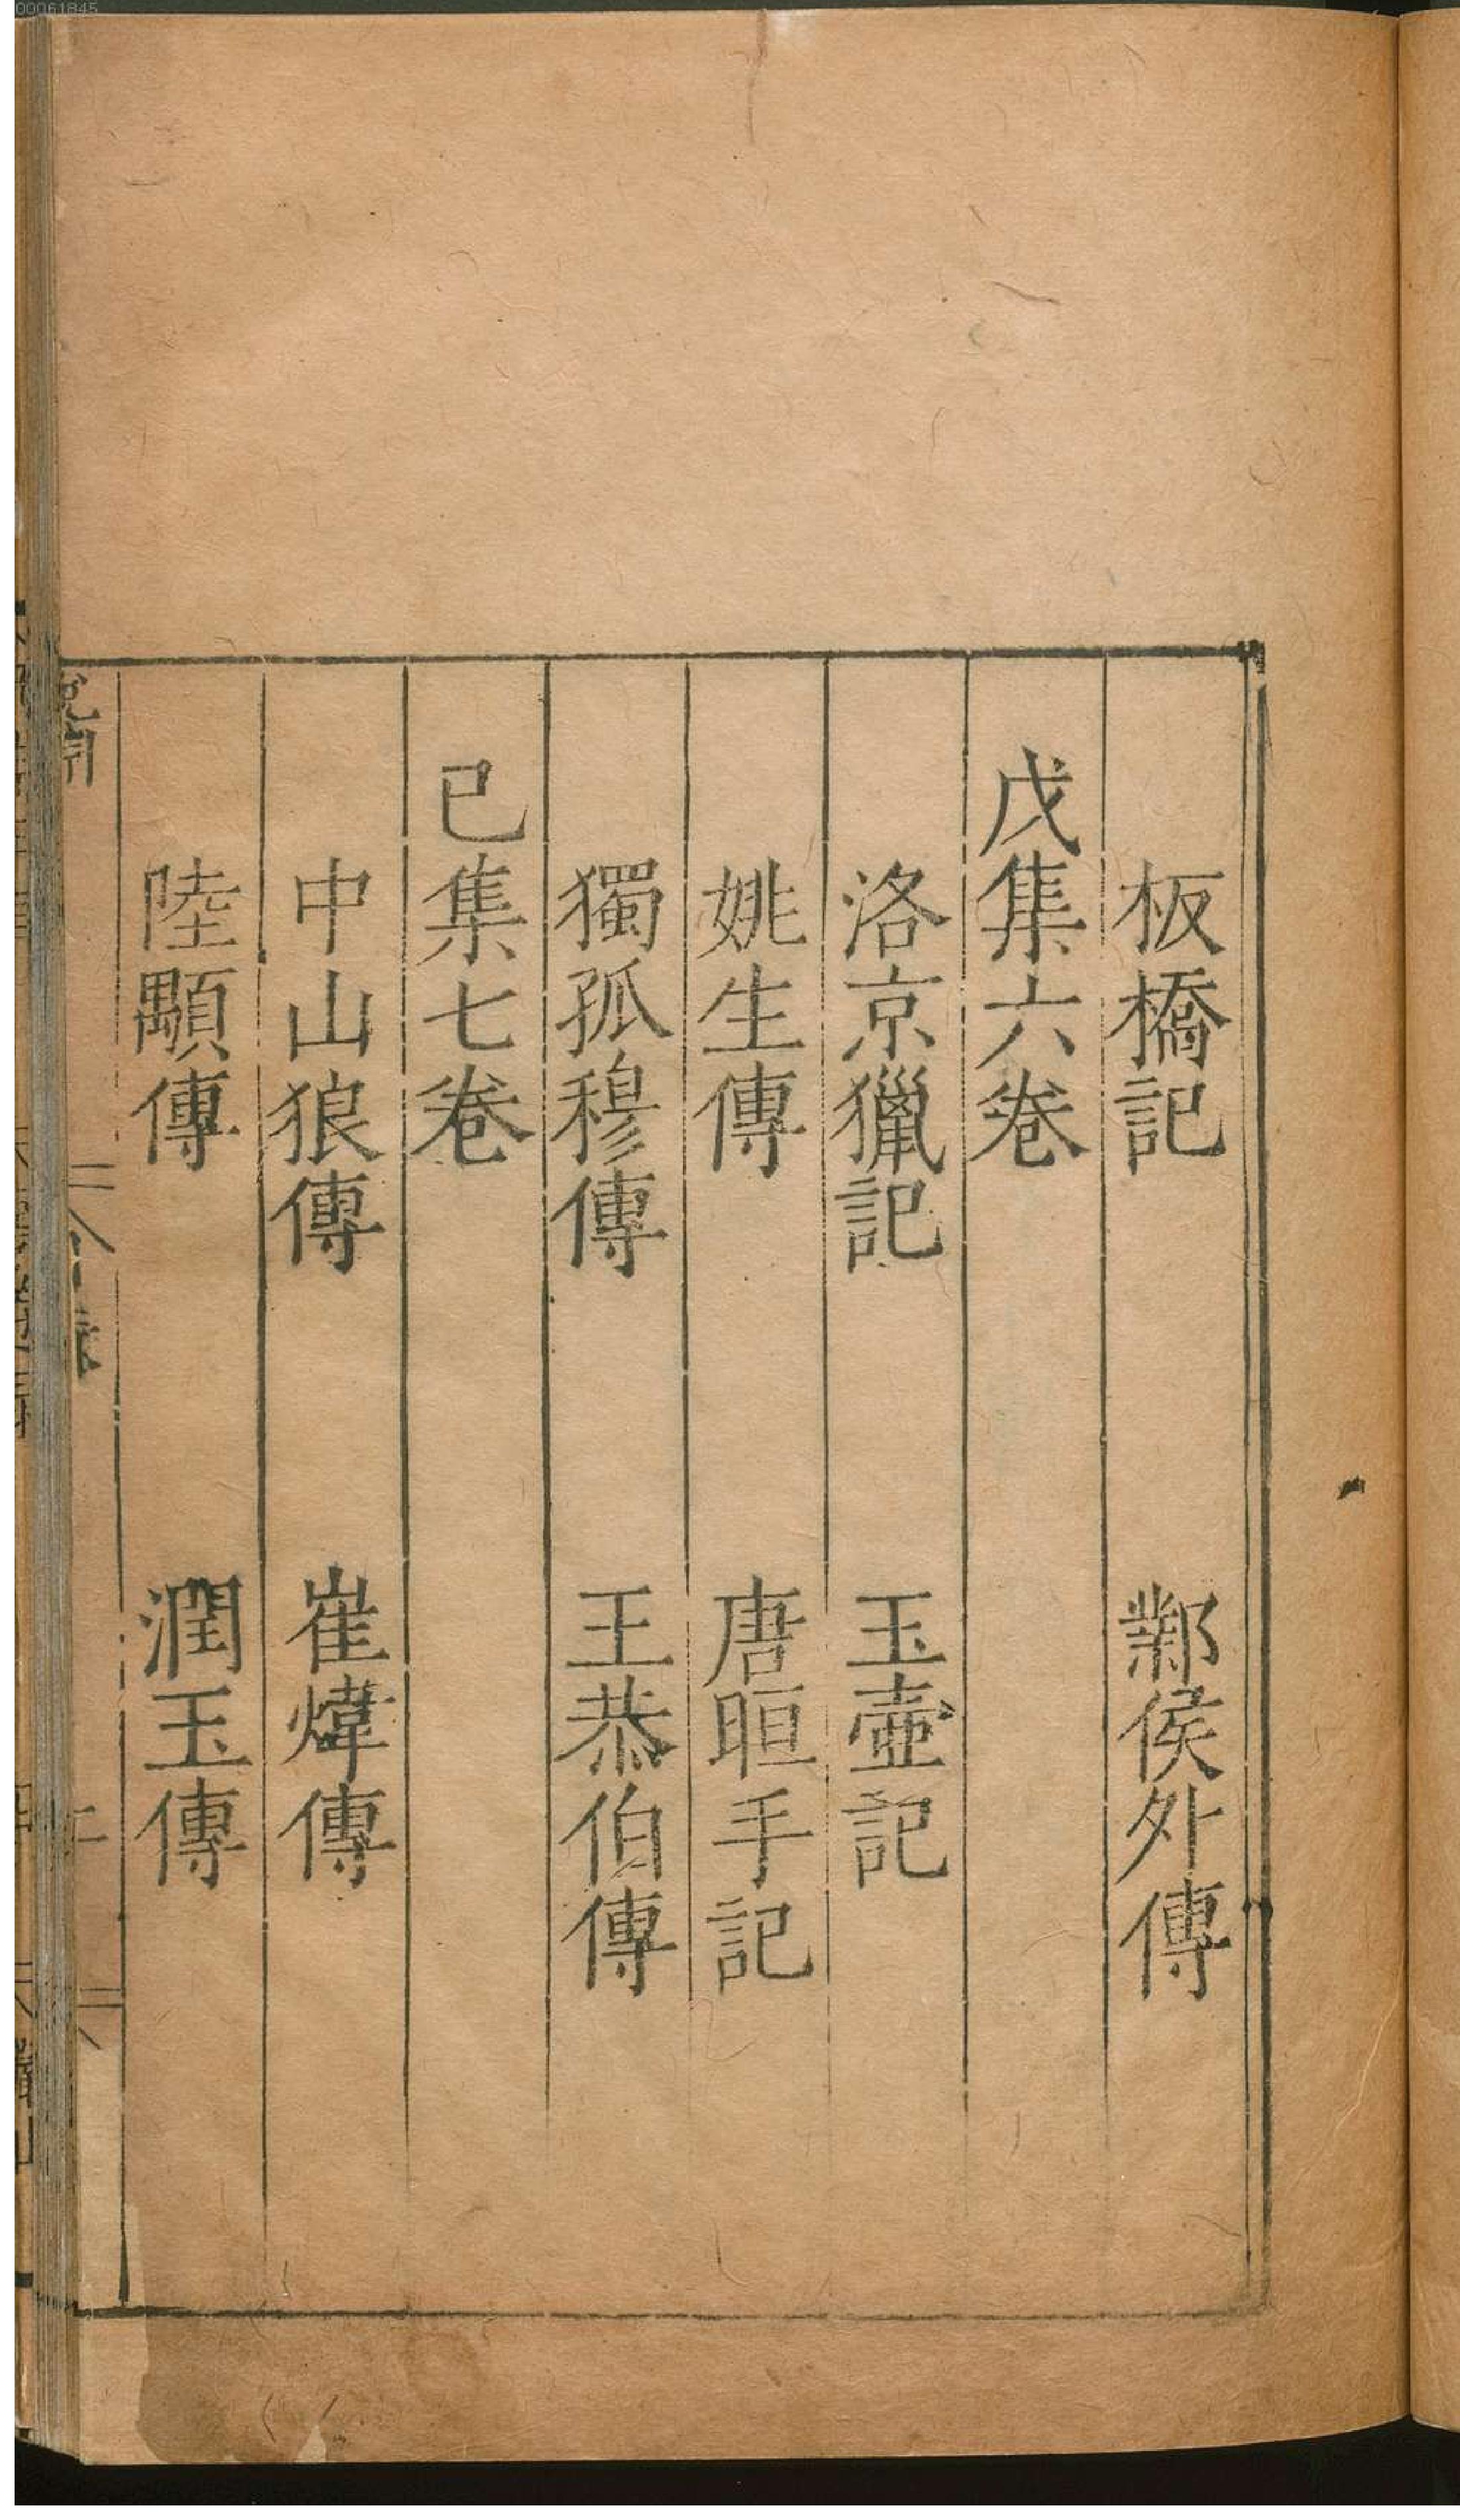 00061845
板橋記　鄴侯外傳
戊集六卷
洛京獵記　玉壺記
姚生傳　唐晅手記
獨孤穆傳　王恭伯傳
已集七卷
中山狼傳　崔煒傳
陸顒傳　潤玉傳